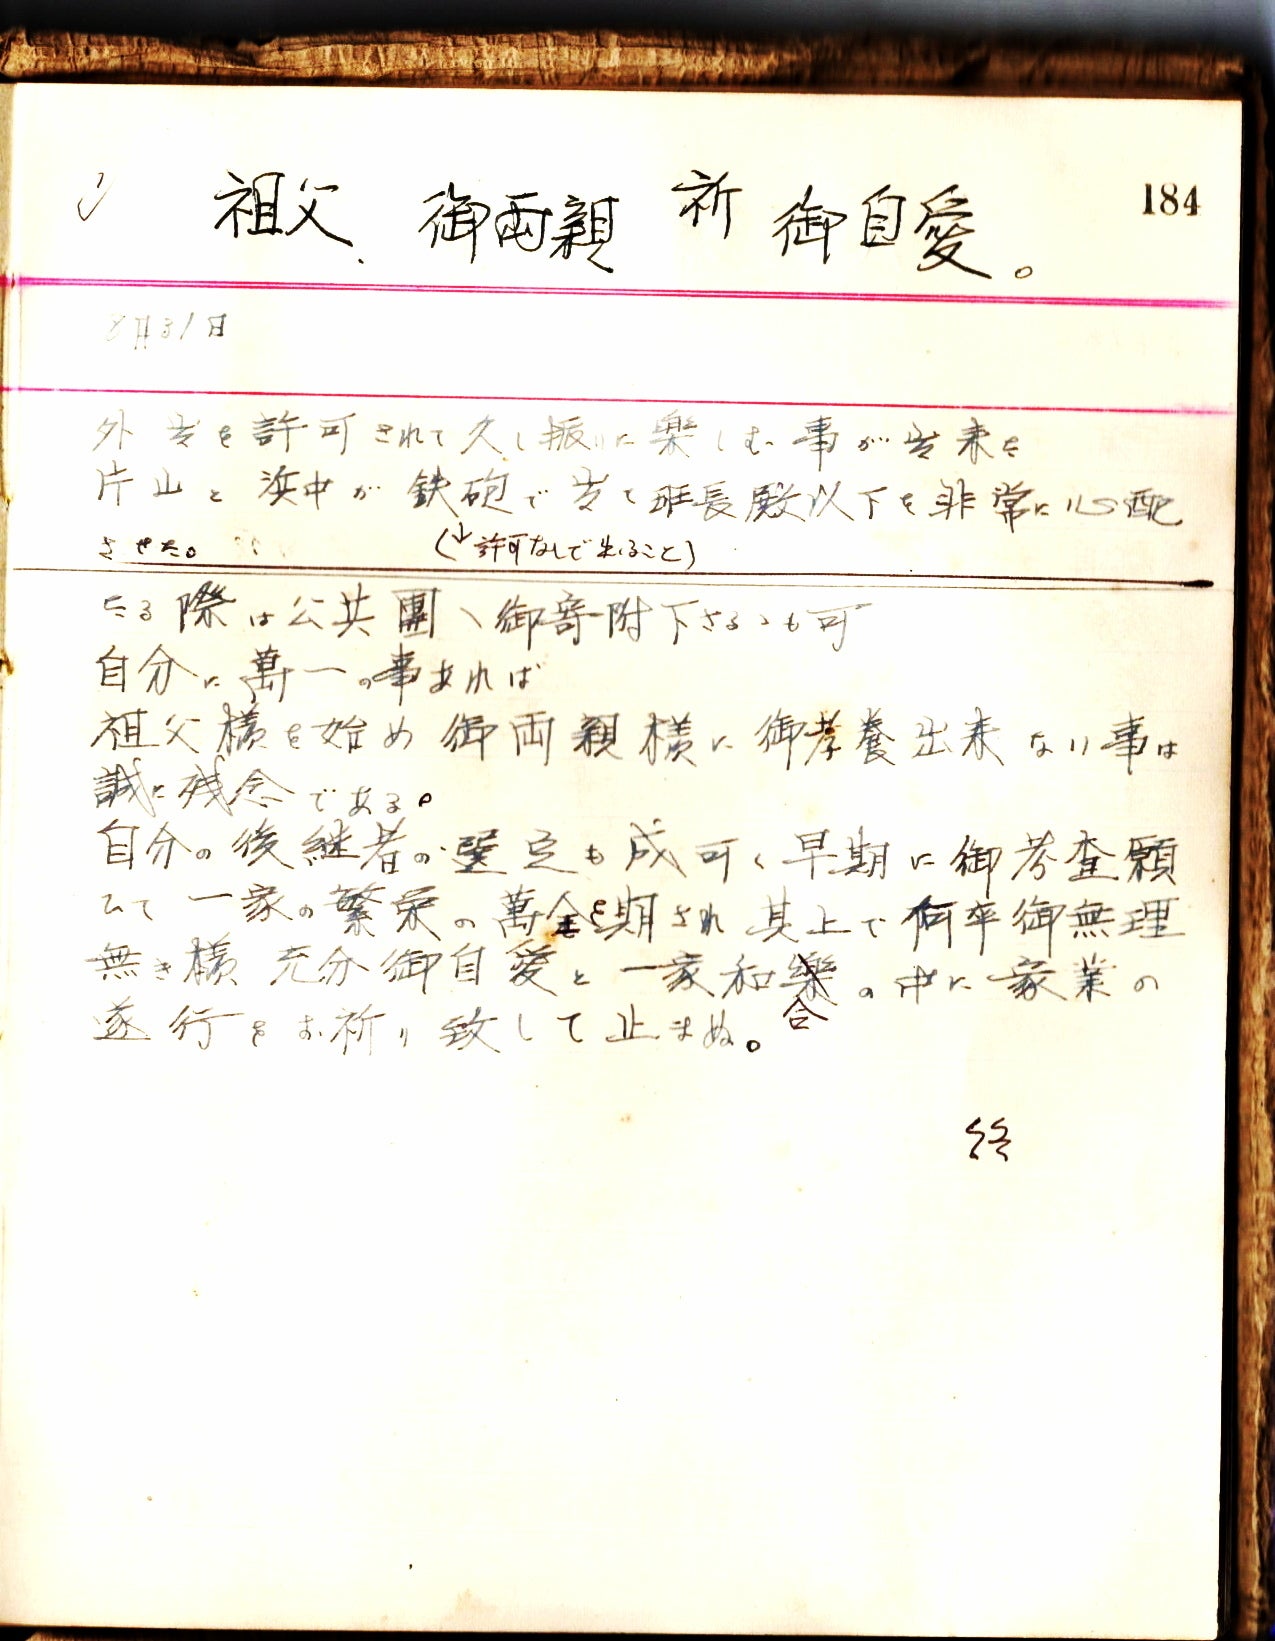 184
祖父、御両親 祈 御自愛。
8月31日
外出を許可されて久し振りに楽しむ事が出来た
片山と浜中が鉄砲で出て班長殿以下を非常に心配
させた。
(↓許可なしで出ること)
たる際は公共團へ御寄附下さるゝも可
自分に萬一の事あれば
祖父様を始め御両親様に御孝養出来ない事は
誠に残念である。
自分の後継者の選定も成可く早期に御考査願
ひて一家の繁栄の萬全を期され其上で何卒御無理
無き様充分御自愛と一家和合の中に家業の
遂行をお祈り致して止まぬ。
終